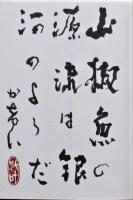 山椒魚の
源流は銀
河のようだ